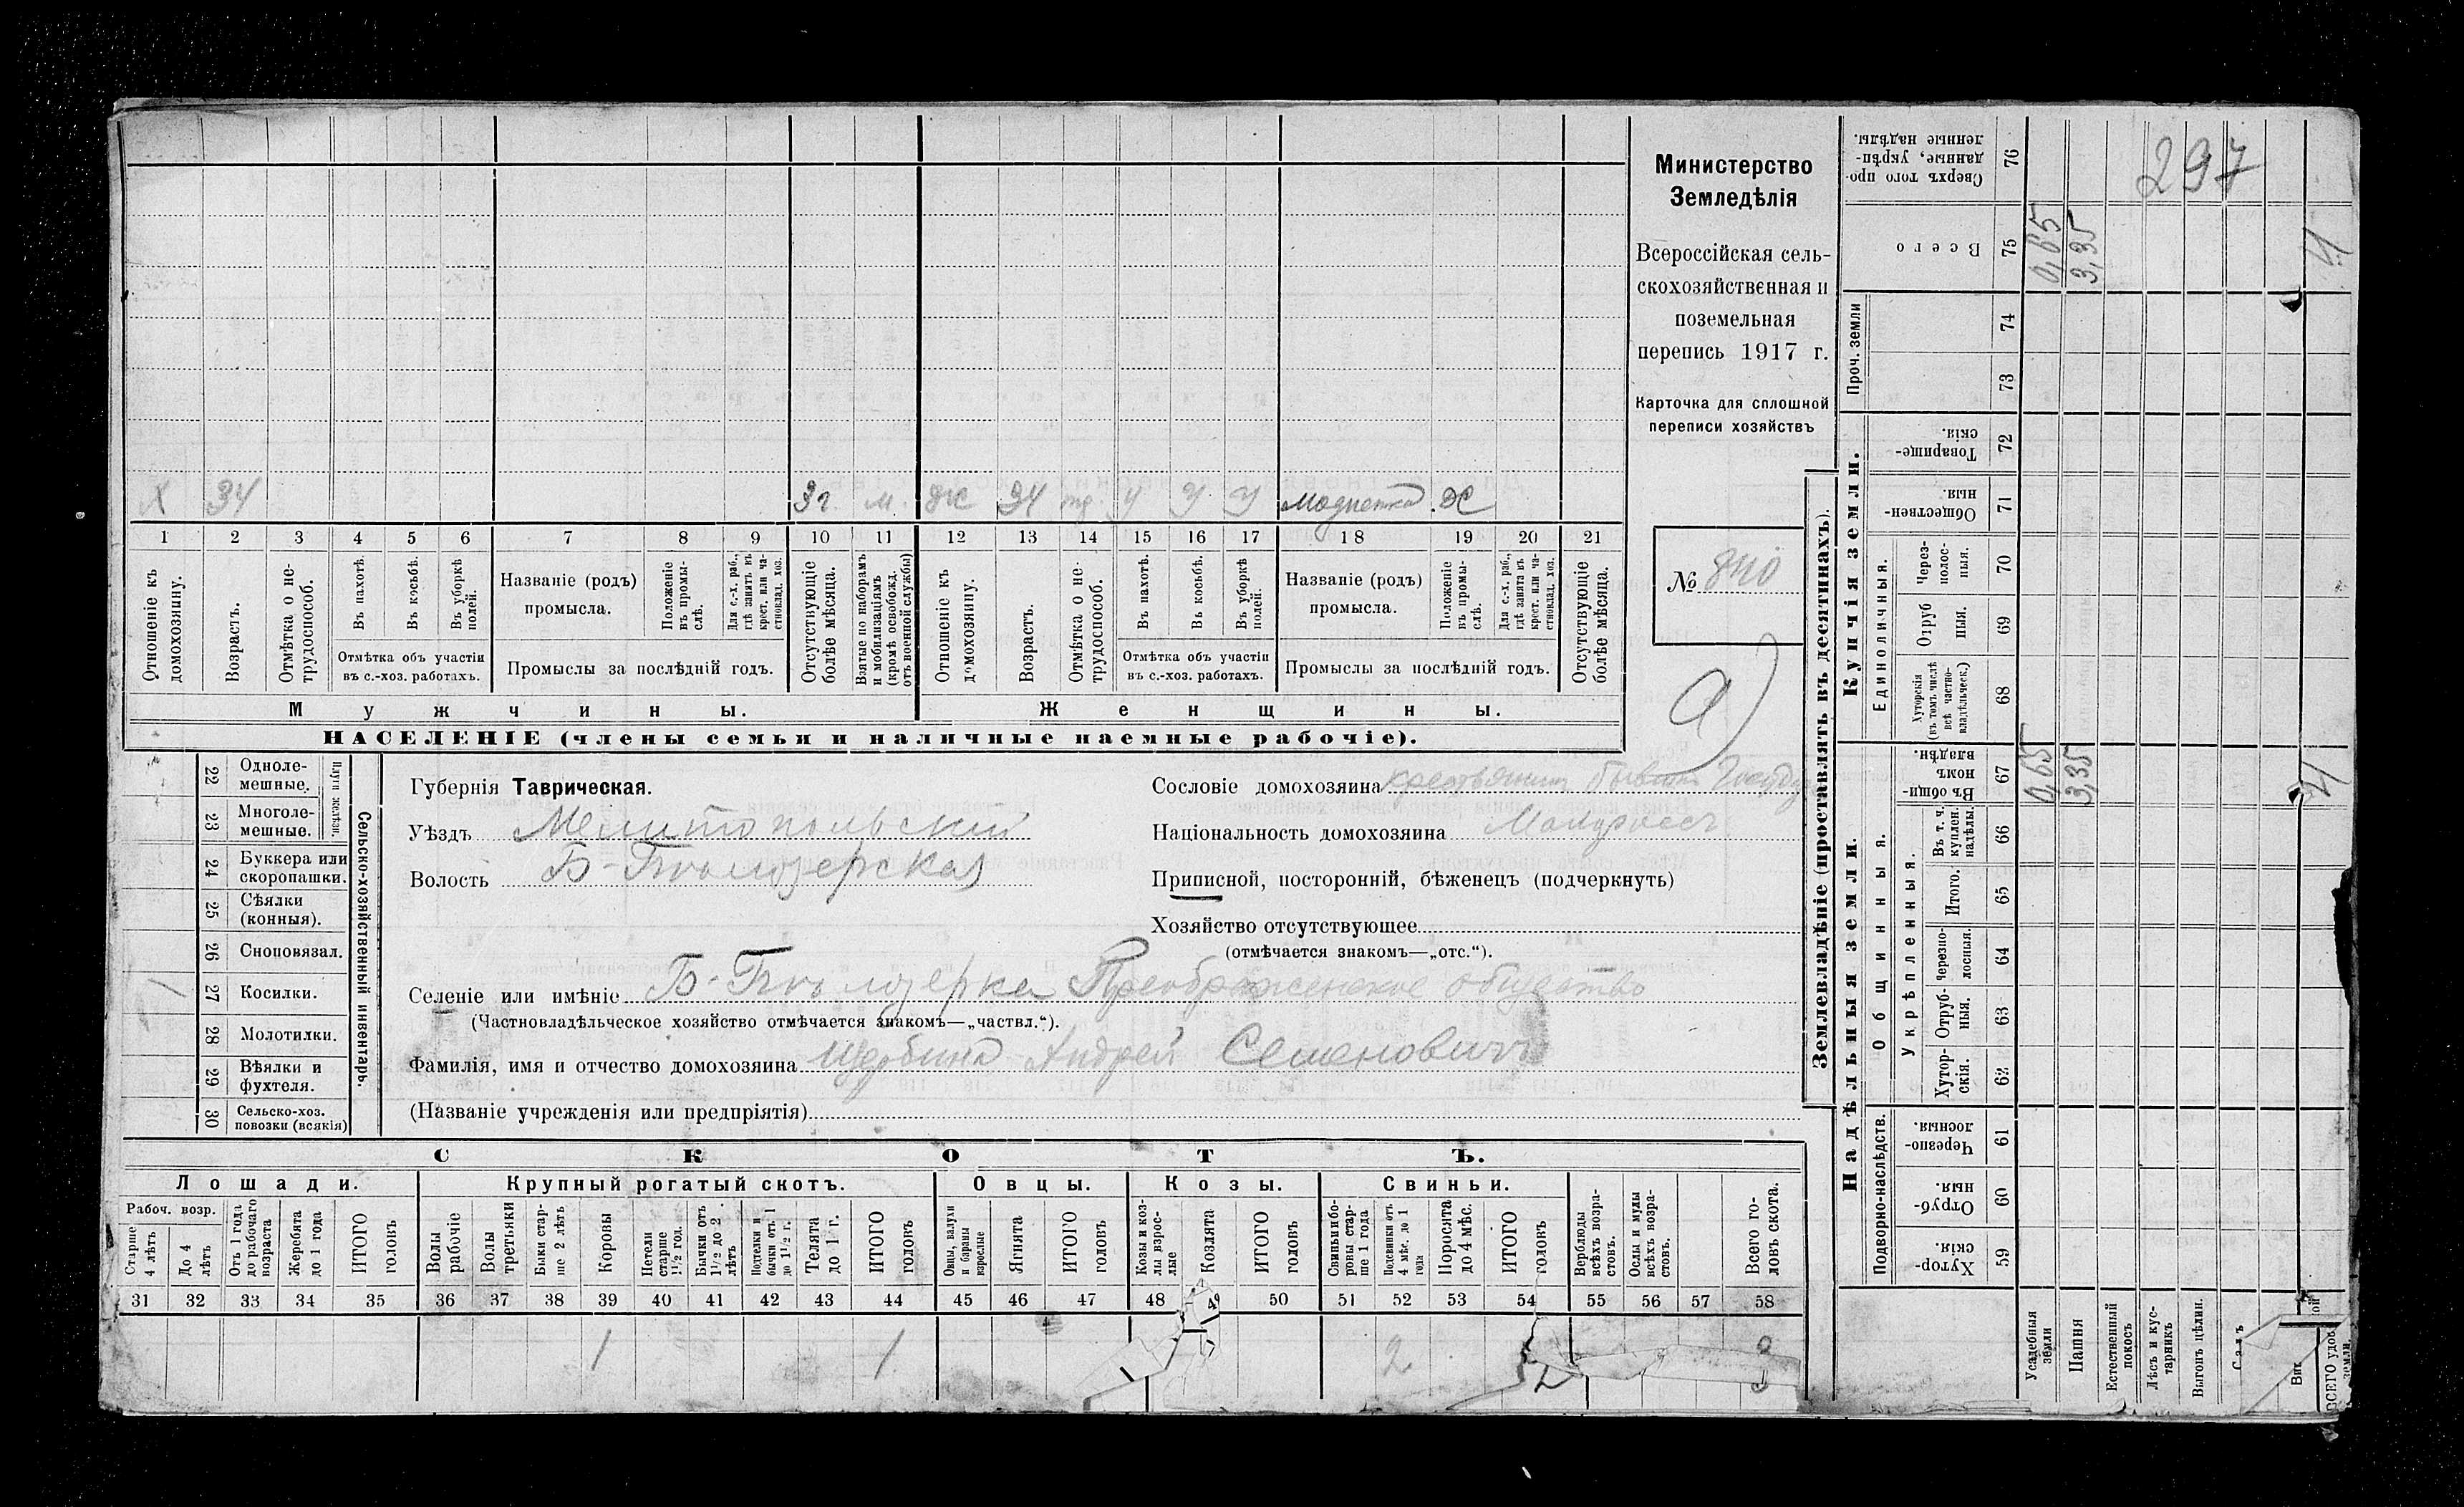 Министерство
Земледѣлія
Всероссійская сель-
скохозяйственная и
поземельная
перепись 1917 г.
Карточка для сплошной
переписи хозяйствъ
№ 840
а)
297
Х 34 3 г. м. ж 34 у у у модистка Ж
1 2 3 4 5 6 7 8 9 10 11 12 13 14 15 16 17 18 19 20 21
Отношеніе къ домохозяину.
Возрастъ.
Отмѣтка о не-трудоспособ.
Въ пахотѣ.
Въ косьбѣ.
Въ уборкѣ полей.
Отмѣтка объ участіи
въ с.-хоз. работахъ.
Названіе (родъ)
промысла.
Положеніе въ промы-слѣ.
Для с.-х. раб., гдѣ занятъ въ крест. или ча-стновлад. хоз.
Промыслы за послѣдній годъ.
Отсутствующіе болѣе мѣсяца.
Взятые по наборамъ и мобилизаціямъ (кромѣ освобожд. отъ военной службы)
Отношеніе къ домохозяину.
Возрастъ.
Отмѣтка о не-трудоспособ.
Въ пахотѣ.
Въ косьбѣ.
Въ уборкѣ полей.
Отмѣтка объ участіи
въ с.-хоз. работахъ.
Названіе (родъ)
промысла.
Положеніе въ промы-слѣ.
Для с.-х. раб., гдѣ занята въ крест. или ча-стновлад. хоз.
Промыслы за послѣдній годъ.
Отсутствующіе болѣе мѣсяца.
Мужчины. Женщины.
НАСЕЛЕНІЕ (члены семьи и наличные наемные рабочіе).
22 Одноле-мешные.
23 Многоле-мешные.
Плуги желѣзн.
24 Буккера или скоропашки.
25 Сѣялки (конныя).
26 Сноповязал.
27 Косилки.
28 Молотилки.
29 Вѣялки и фухтеля.
30 Сельско-хоз. повозки (всякія)
Сельско-хозяйственный инвентарь.
Губернія Таврическая.
Уѣздъ Мелитопольскій
Волость Б-Бѣлозерская
Сословіе домохозяина крестьянин бывш Госуд
Національность домохозяина Малороссъ
Приписной, посторонній, бѣженецъ (подчеркнуть)
Хозяйство отсутствующее
(отмѣчается знакомъ—„отс.“).
Селеніе или имѣніе Б-Бѣлозерка Преображенское общество
(Частновладѣльческое хозяйство отмѣчается знакомъ—„частвл.“).
Фамилія, имя и отчество домохозяина Щербина Андрей Семеновичъ
(Названіе учрежденія или предпріятія)
СКОТЪ.
Лошади. Крупный рогатый скотъ. Овцы. Козы. Свиньи.
Рабоч. возр.
Старше 4 лѣтъ
До 4 лѣтъ
Отъ 1 года до рабочаго возраста
Жеребята до 1 года
ИТОГО головъ
Волы рабочіе
Волы третьяки
Быки стар-ше 2 лѣтъ
Коровы
Нетели старше 1½ год.
Бычки отъ 1½ до 2 лѣтъ
Подтелки и бычки отъ 1 до 1½ г.
Телята до 1 г.
ИТОГО головъ
Овцы, валухи и бараны взрослые
Ягнята
ИТОГО головъ
Козы и коз-лы взрос-лые
Козлята
ИТОГО головъ
Свиньи и бо-ровы стар-ше 1 года
Подсвинки отъ 4 мѣс. до 1 года
Поросята до 4 мѣс.
ИТОГО головъ
Верблюды всѣхъ возра-стовъ.
Ослы и мулы всѣхъ возра-стовъ.
Всего го-ловъ скота.
31 32 33 34 35 36 37 38 39 40 41 42 43 44 45 46 47 48 49 50 51 52 53 54 55 56 57 58
1 1 2 2 3
3
Землевладѣніе (проставлять въ десятинахъ).
Надѣльныя земли. Купчія земли. Проч. земли
Подворно-наслѣдств.
Общинныя.
Укрѣпленныя.
Единоличныя.
Хутор-скія. 59
Отруб-ныя. 60
Черезпо-лосныя. 61
Хутор-скія. 62
Отруб-ныя. 63
Черезпо-лосныя. 64
Итого. 65
Въ т. ч. куплен. надѣлы. 66
Въ общи-номъ владѣн. 67
Хуторскія (въ томъ числѣ всѣ частно-владѣльческ.) 68
Отруб ныя. 69
Через-полос-ныя. 70
Обществен-ныя. 71
Товарище-скія. 72
73
74
Всего 75
Сверхъ того про-данные, укрѣп-ленные надѣлы. 76
Усадебныя земли 0,65 0,65
Пашня 3,35 3,35
Естественный покосъ
Лѣсъ и кус-тарникъ
Выгонъ цѣлин.
Садъ
ВСЕГО удоб. земли. 4 4